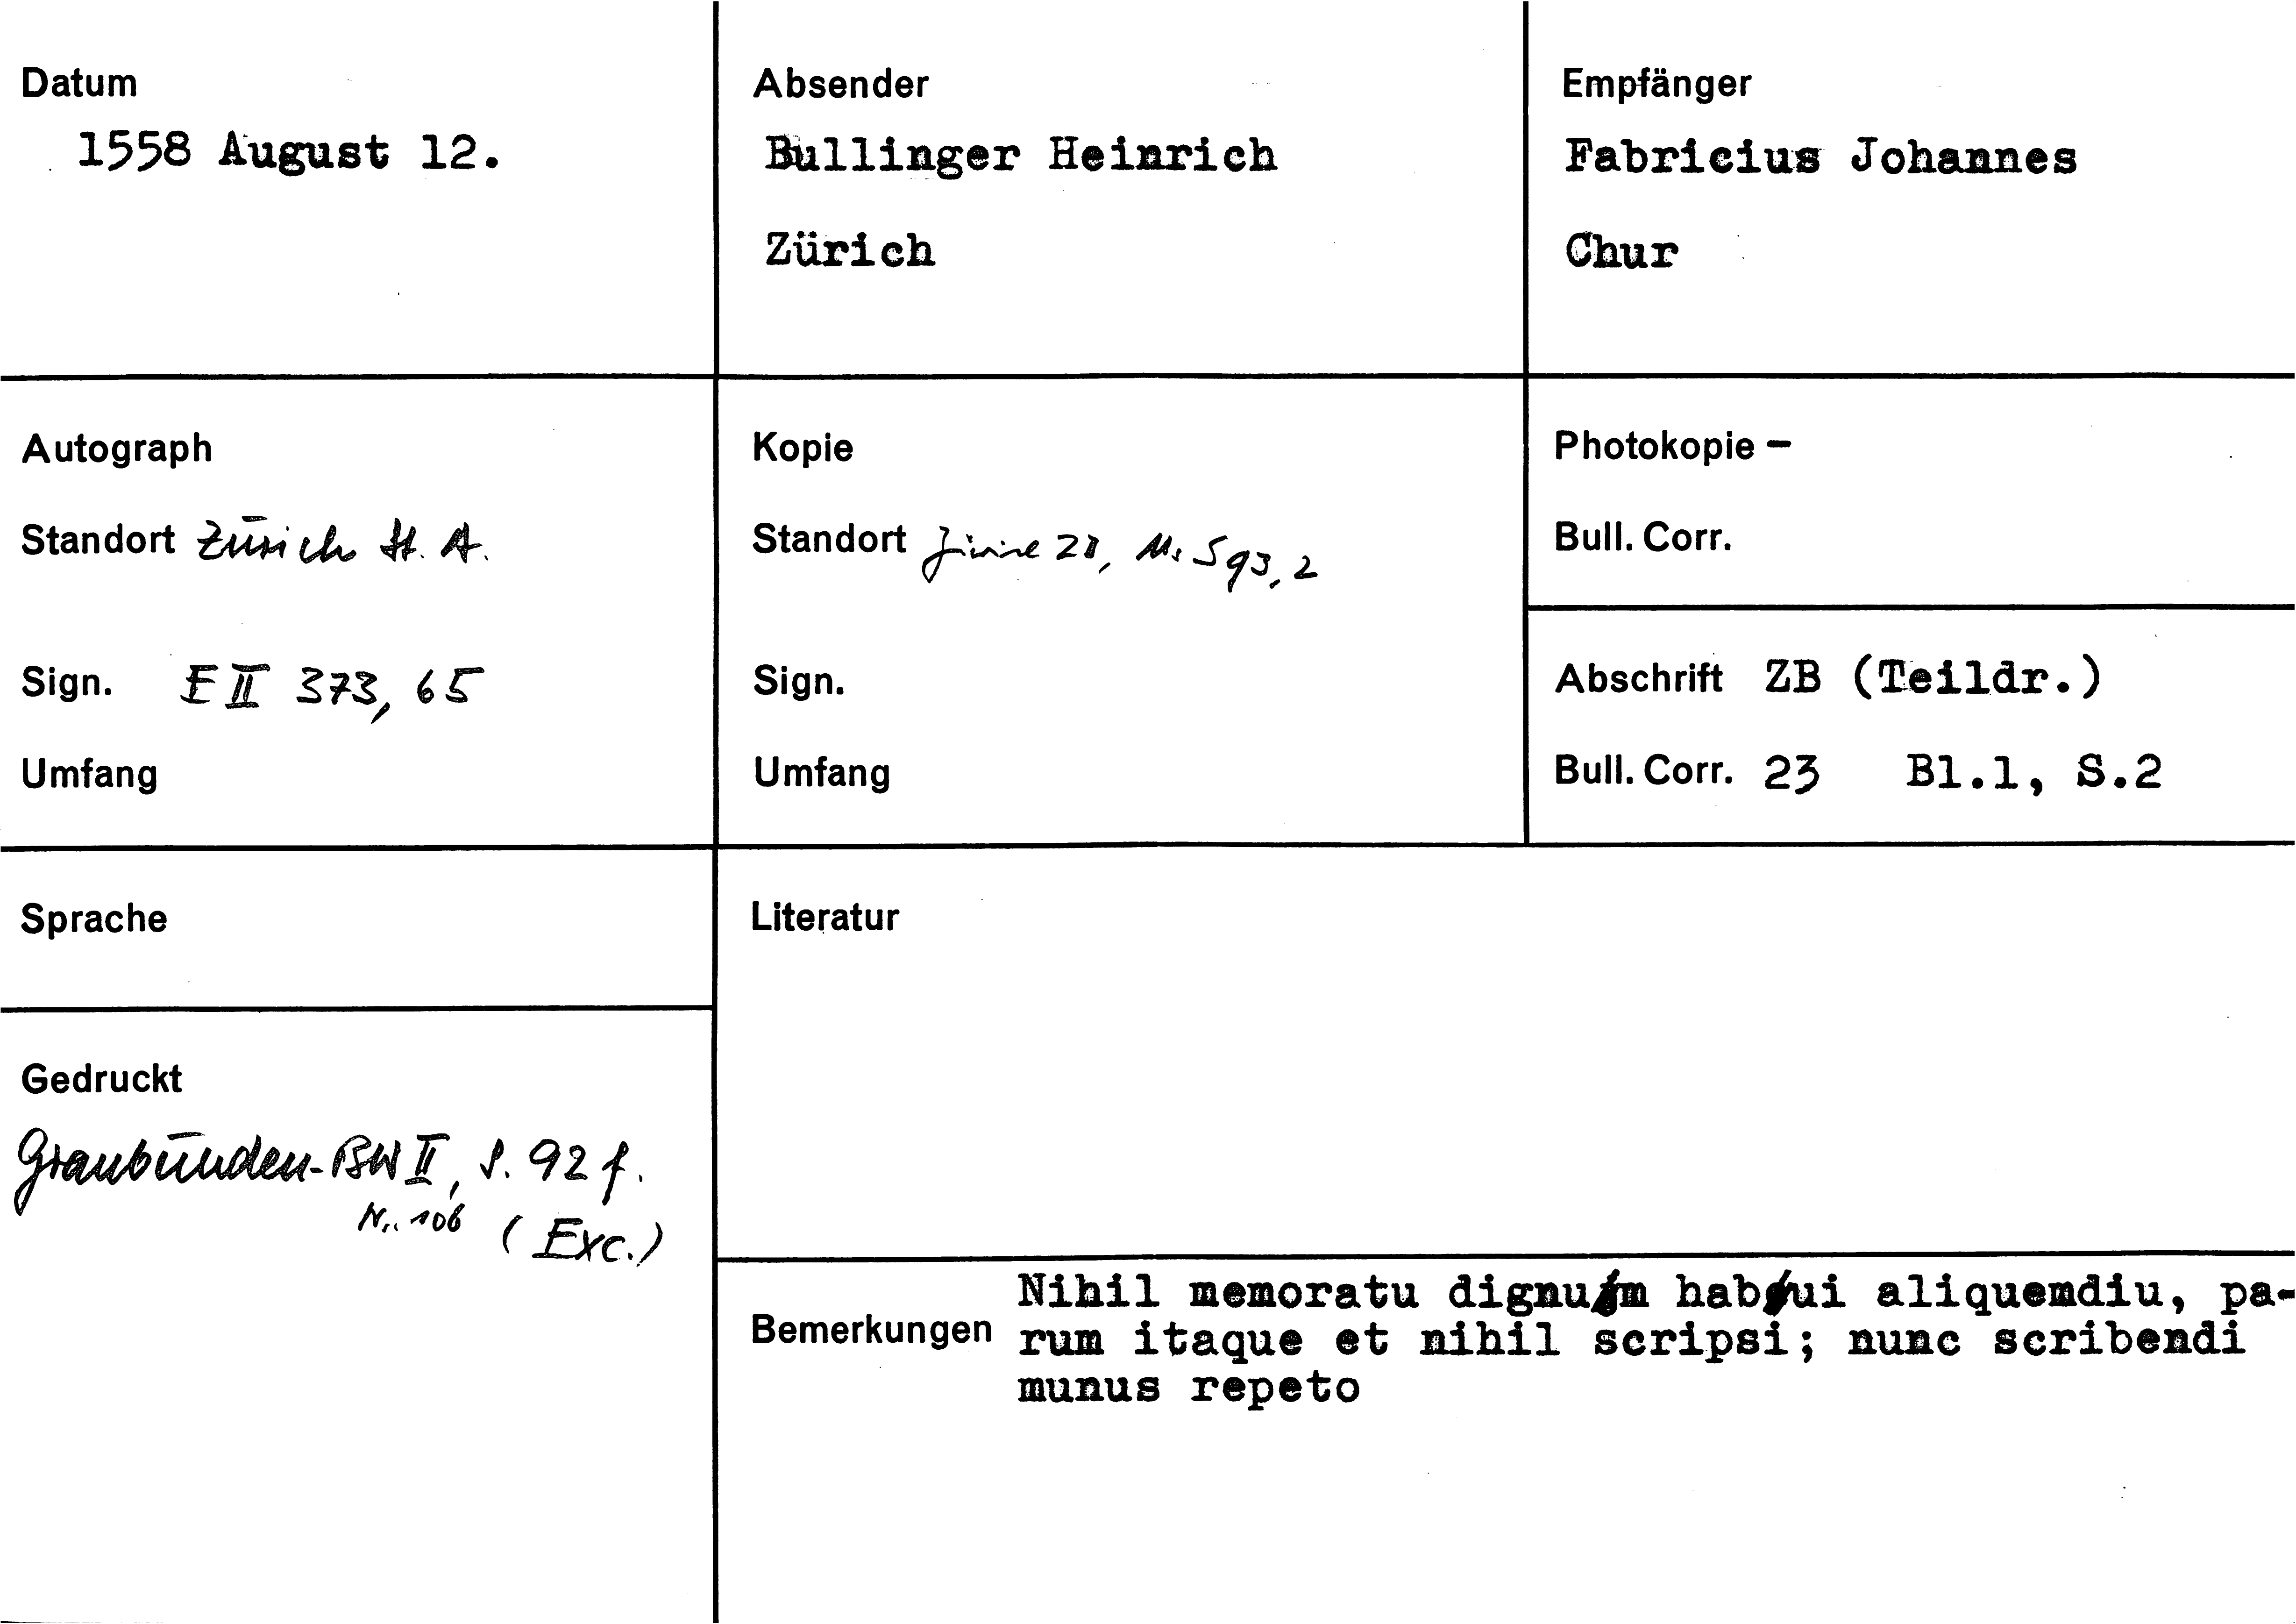 Datum
1558 August 12.
Absender
Bullinger Heinrich
Zürich
Empfänger
Fabricius Johannes
Chur
Autograph
Standort Zürich St. A.
Sign. E II 373, 65
Umfang
Kopie
Standort Zürich ZB, Ms S 93, 2
Sign.
Umfang
Photokopie –
Bull. Corr.
Abschrift ZB (Teildr.)
Bull. Corr. 23 Bl.1, S.2
Sprache
Gedruckt
Graubünden-BW II, S. 92 f.
Nr. 106 (Exc.)
Literatur
Bemerkungen
Nihil memoratu dignum habui aliquemdiu, pa-
rum itaque et nihil scripsi; nunc scribendi
munus repeto